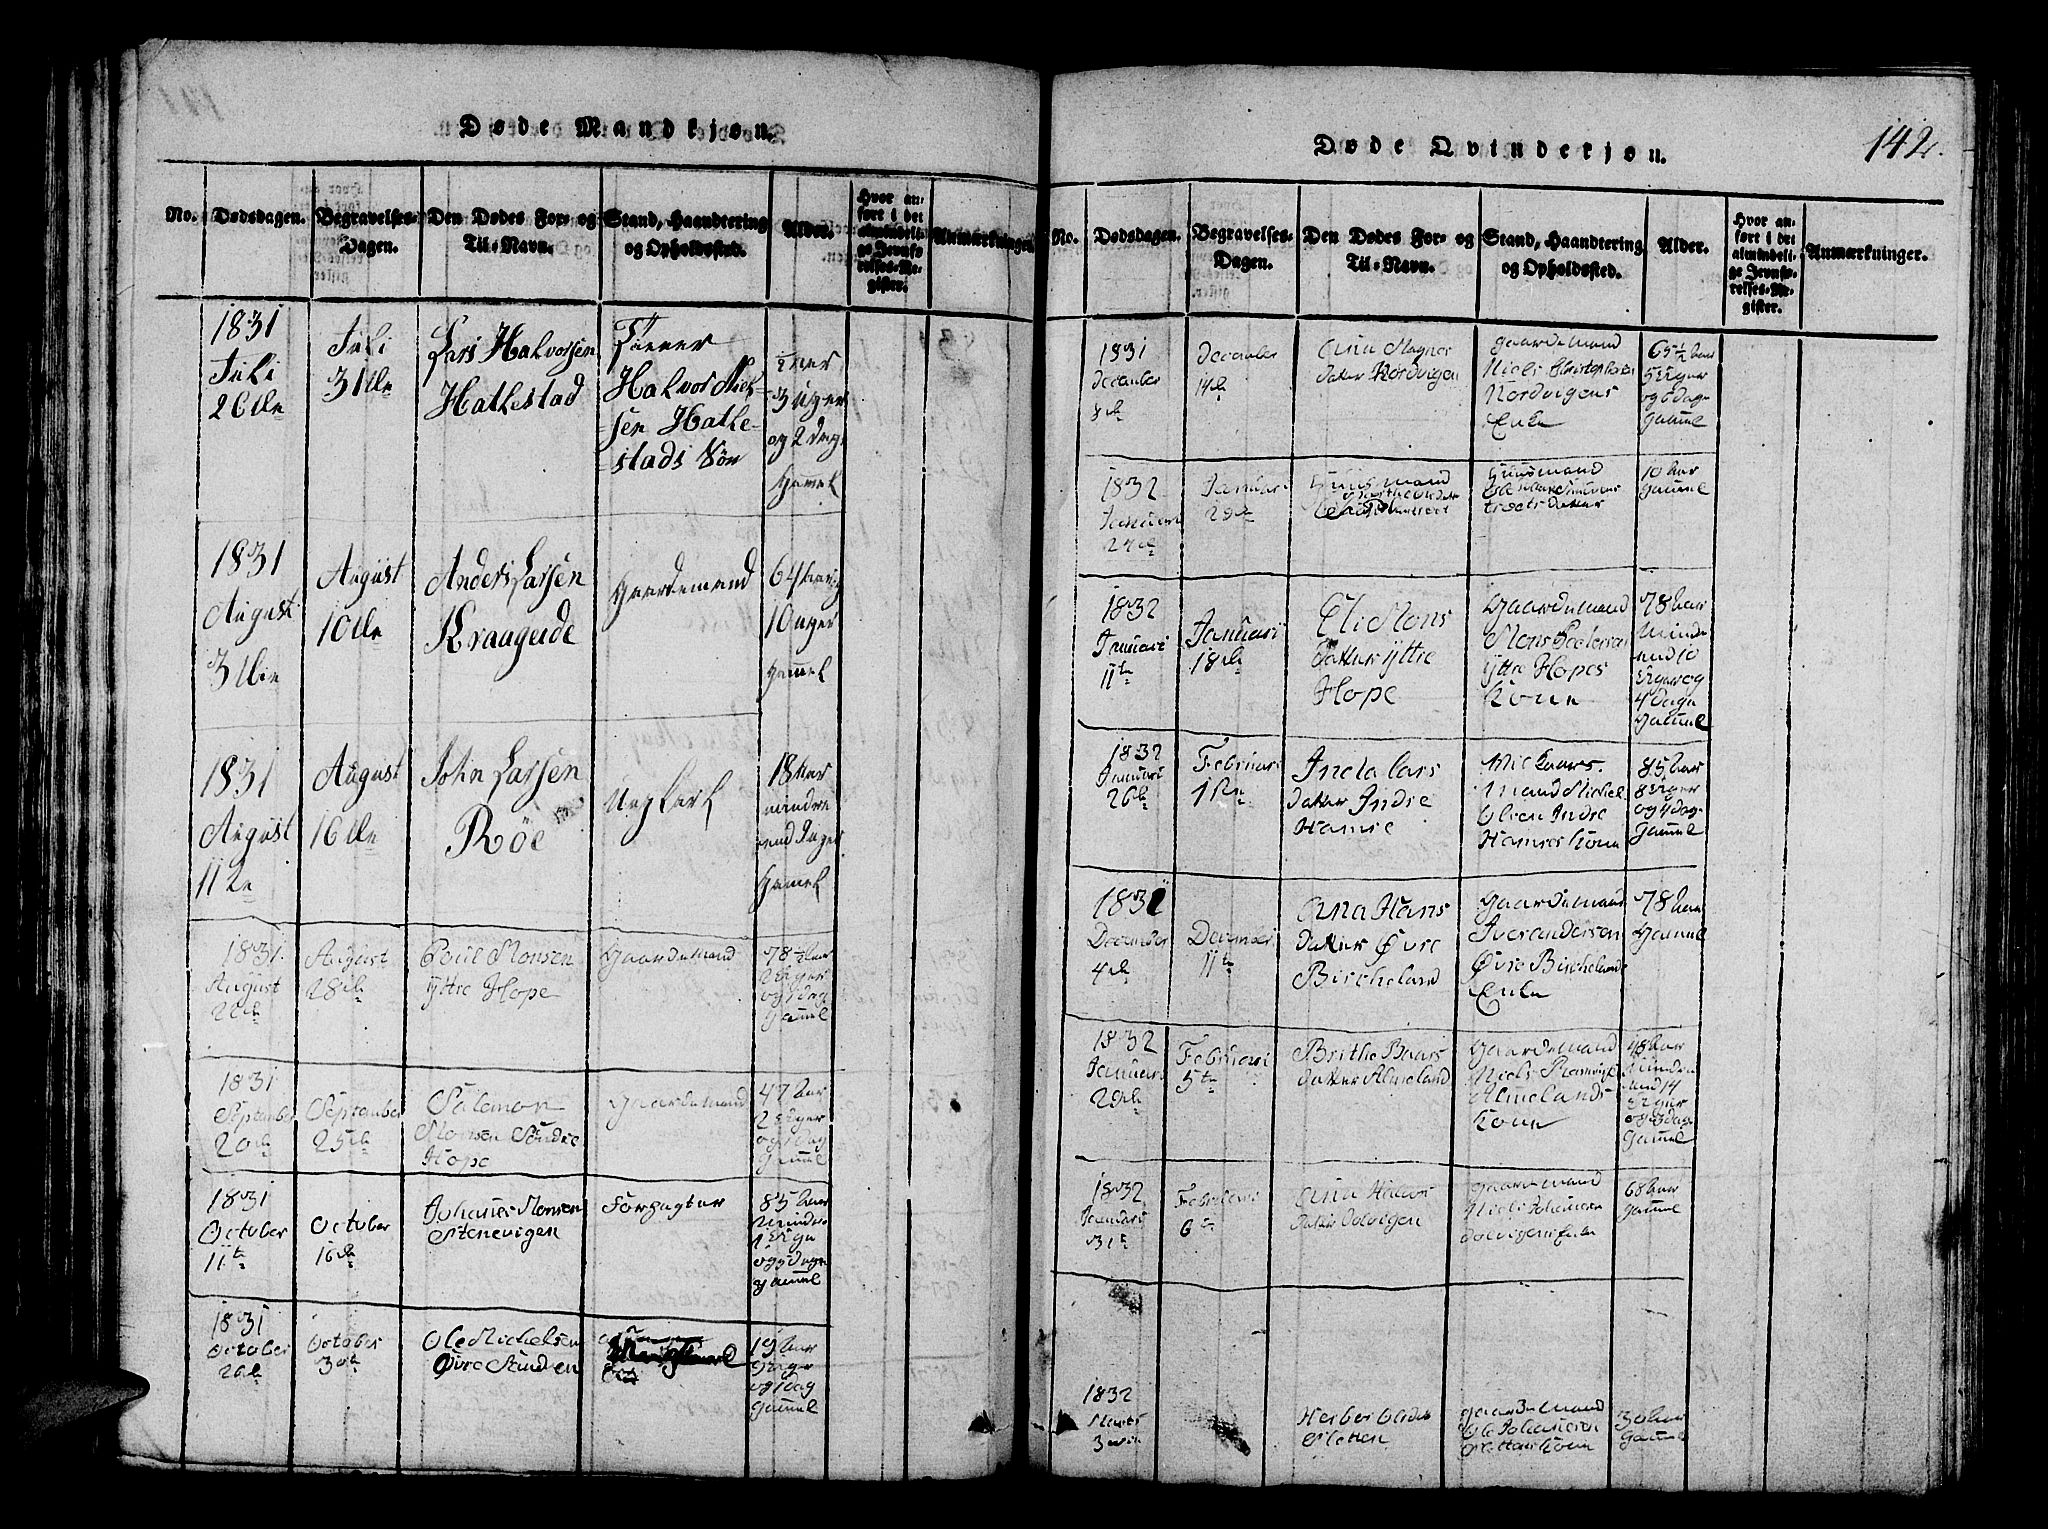 Døde Mandkjøn.
No.
Dødsdagen.
Begravelses-
Dagen.
Den Dødes For- og
Til-Navn.
Stand, Haandtering
og Opholdssted.
Alder.
Hvor an-
ført i det
almindeli-
ge Jevnfø-
relses-Re-
gister.
Anmærkninger.
1831
Juli
26de
Juli
31de
Lars Halvorsen
Hatlestad
Halvor
sen Hatle-
stads Søn
3 Uger
og 2 Dag
gamel
1831
August
3die
August
10de
Anders Larsen
Kraageide
Gaardemand
64 Aar
10 uger
gamel
1831
August
11te
August
16de
John Larsen
Röe
Ungkarl
18 Aar
mindre
end Uger
gamel
1831
August
22de
August
28de
Poul Monsen
Yttre Hope
Gaardemand
78 1/2 Aar
2 Uger
og 1 dag
Gammel
1831
September
20de
September
25de
Salamon
Monsen Søndre
Hope
Gaardemand
47 Aar
2 Uger
og 1 dag
Gammel
1831
October
11te
October
16de
Johannes Monsen
Stenevigen
Forpagter
83 Aar
Mindre
1 Uge
og 5 dage
gammel
1831
October
26de
October
30de
Ole Michelsen
Øvre Sunden
19 Aar
Uger
og 1 dag
Gammel
Døde Qvindekjøn.
142.
No.
Dødsdagen.
Begravelses-
Dagen.
Den Dødes For- og
Til-Navn.
Stand, Haandtering
og Opholdssted.
Alder.
Hvor an-
ført i det
almindeli-
ge Jevnfø-
relses-Re-
gister.
Anmærkninger.
1831
December
8de
December
14de
Ana Magnes
Datter Nordvigen
Gaardemand
Niels Christophersen
Nordvigens
Enke
65 1/2 Aar
5 Uger
og 6 dage
Gammel
1832
Januari
24de
Januari
29de
Huusmand
Huusmand
datter
10 Aar
Gammel
1832
Januari
11te
Januari
18de
Eli Mons
datter Yttre
Hope
Gaardemand
Mons Pedersen
Yttre Hopes
Kone
78 Aar
Minde
end 10
Uger og
4 dage
Gammel
1832
Januari
26de
Februari
1ste
Lars
datter Indre
Hamre
mand Michel
Olsen Indre
Hamres Kone
85 Aar
8 Uger
og 4 dage
Gammel
1831
December
4de
December
11te
Ana Hans
datter Øvre
Bircheland
Gaardemand
Iver Andersen
Øvre Birchelands
Enke
78 Aar
Gammel
1832
Januari
29de
Februari
5te
Brithe Baars
datter Almeland
Gaardemand
Niels
Almelands
Kone
48 Aar
Mindre
end 14
Uger
og 3 dage
Gammel
1832
Januari
31te
Februari
6te
Ana Halvors
datter Dolvigen
Gaardemand
Niels Johannesen
Dolvigens Enke
68 Aar
Gammel
1832
Marts
3die
Herber Olsdatter
Sletten
Gaardemand
Ole Johannesen
Slettens Kone
30 Aar
Gammel